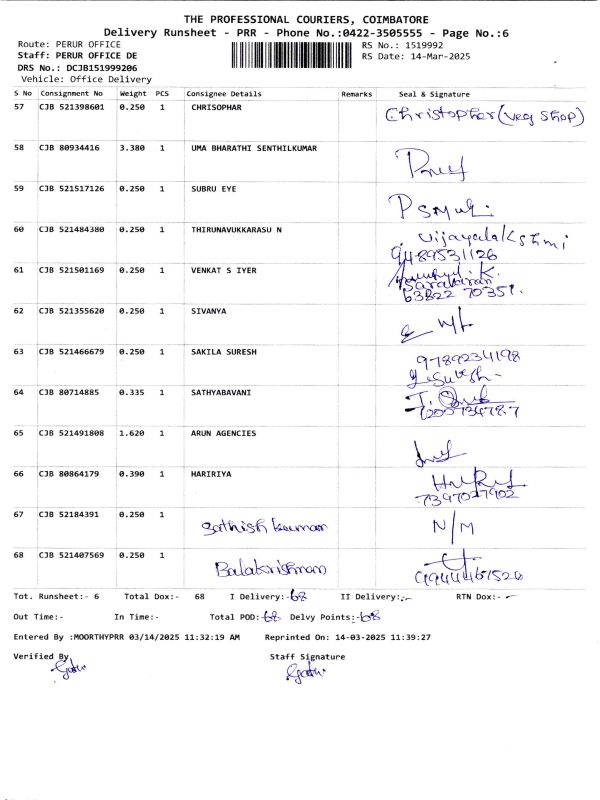 THE PROFESSIONAL COURIERS, COIMBATORE
Delivery Runsheet - PRR - Phone No.:0422-3505555 - Page No.:6
Route: PERUR OFFICE RS No.: 1519992
Staff: PERUR OFFICE DE RS Date: 14-Mar-2025
DRS No.: DCJB151999206
Vehicle: Office Delivery
S No Consignment No Weight PCS Consignee Details Remarks Seal & Signature
57 CJB 521398601 0.250 1 CHRISOPHAR Christopher (veg shop)
58 CJB 80934416 3.380 1 UMA BHARATHI SENTHILKUMAR
59 CJB 521517126 0.250 1 SUBRU EYE
60 CJB 521484380 0.250 1 THIRUNAVUKKARASU N Vijayalakshmi
9489531126
61 CJB 521501169 0.250 1 VENKAT S IYER
63822 70351.
62 CJB 521355620 0.250 1 SIVANYA
63 CJB 521466679 0.250 1 SAKILA SURESH 9789234198
64 CJB 80714885 0.335 1 SATHYABAVANI
65 CJB 521491808 1.620 1 ARUN AGENCIES
66 CJB 80864179 0.390 1 HARIRIYA
7397027902
67 CJB 52184391 0.250 1 Sathish kumar N/M
68 CJB 521407569 0.250 1 Balakrishnan
9944467520
Tot. Runsheet:- 6 Total Dox:- 68 I Delivery:-68 II Delivery:- RTN Dox:-
Out Time:- In Time:- Total POD:-68 Delvy Points:-68
Entered By :MOORTHYPRR 03/14/2025 11:32:19 AM Reprinted On: 14-03-2025 11:39:27
Verified By Staff Signature